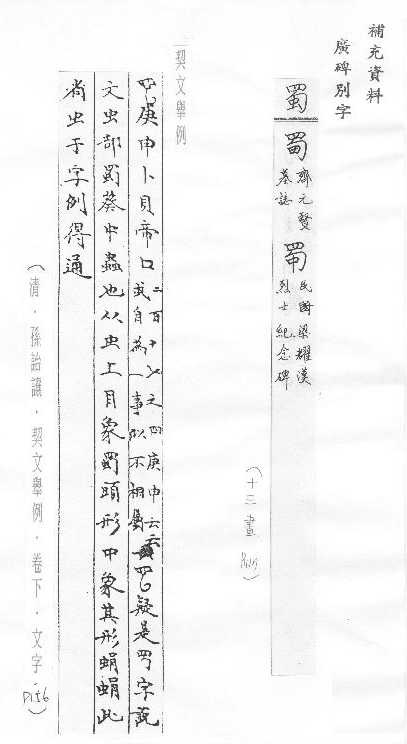 補充資料
廣碑別字
蜀 蜀 齊元賢墓誌 蜀 民國梁耀漢烈士紀念碑
(十三畫
契文舉例
庚申卜貝帝口 二百十七之四庚申云 或自為一事似不相屬 疑是 字說
文虫部蜀葵中蟲也从虫上目象蜀頭形中象其形蜎蜎此
省虫于字例得通
(清．孫詒讓．契文舉例．卷下．文字．P.156)